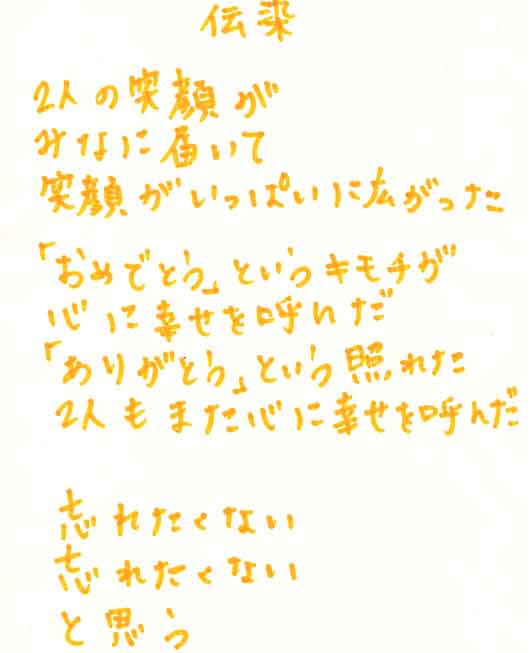 伝染
2人の笑顔が
みなに届いて
笑顔がいっぱいに広がった
「おめでとう」というキモチが
心に幸せを呼んだ
「ありがとう」という照れた
2人もまた心に幸せを呼んだ
忘れたくない
忘れたくない
と思う